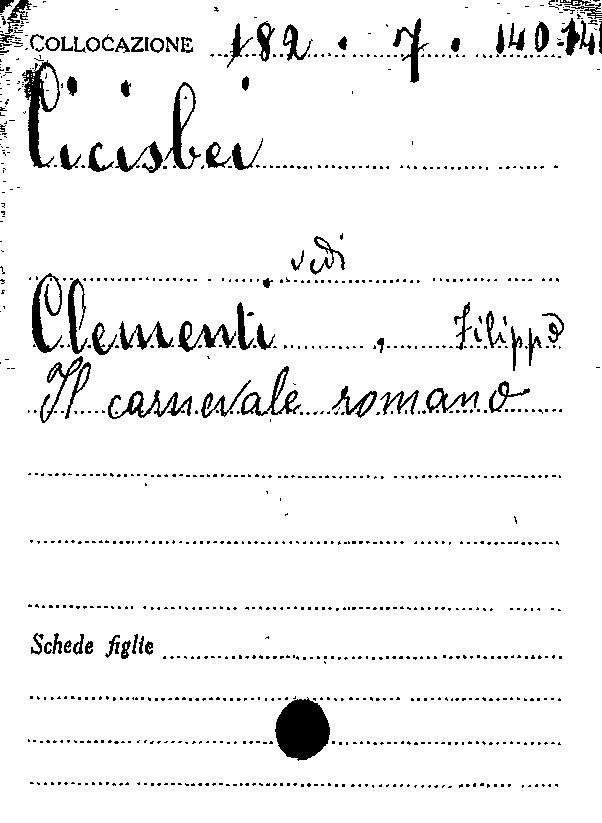 COLLOCAZIONE 182 . 7 . 140-141
Cicisbei
vedi
Clementi , Filippo
Il carnevale romano
Schede figlie